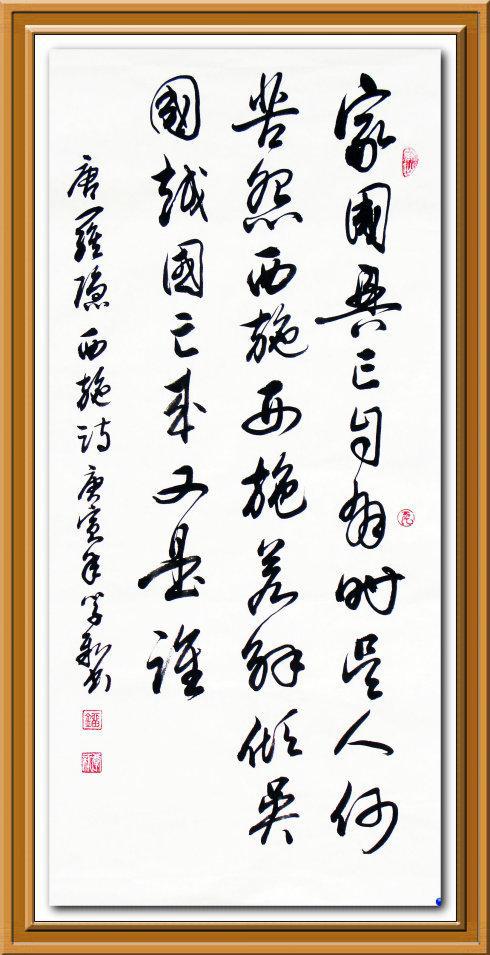 家國興亡自有時吳人何
苦怨西施西施若解傾吳
國越國亡來又是誰
唐羅隱西施詩庚寅年學新書